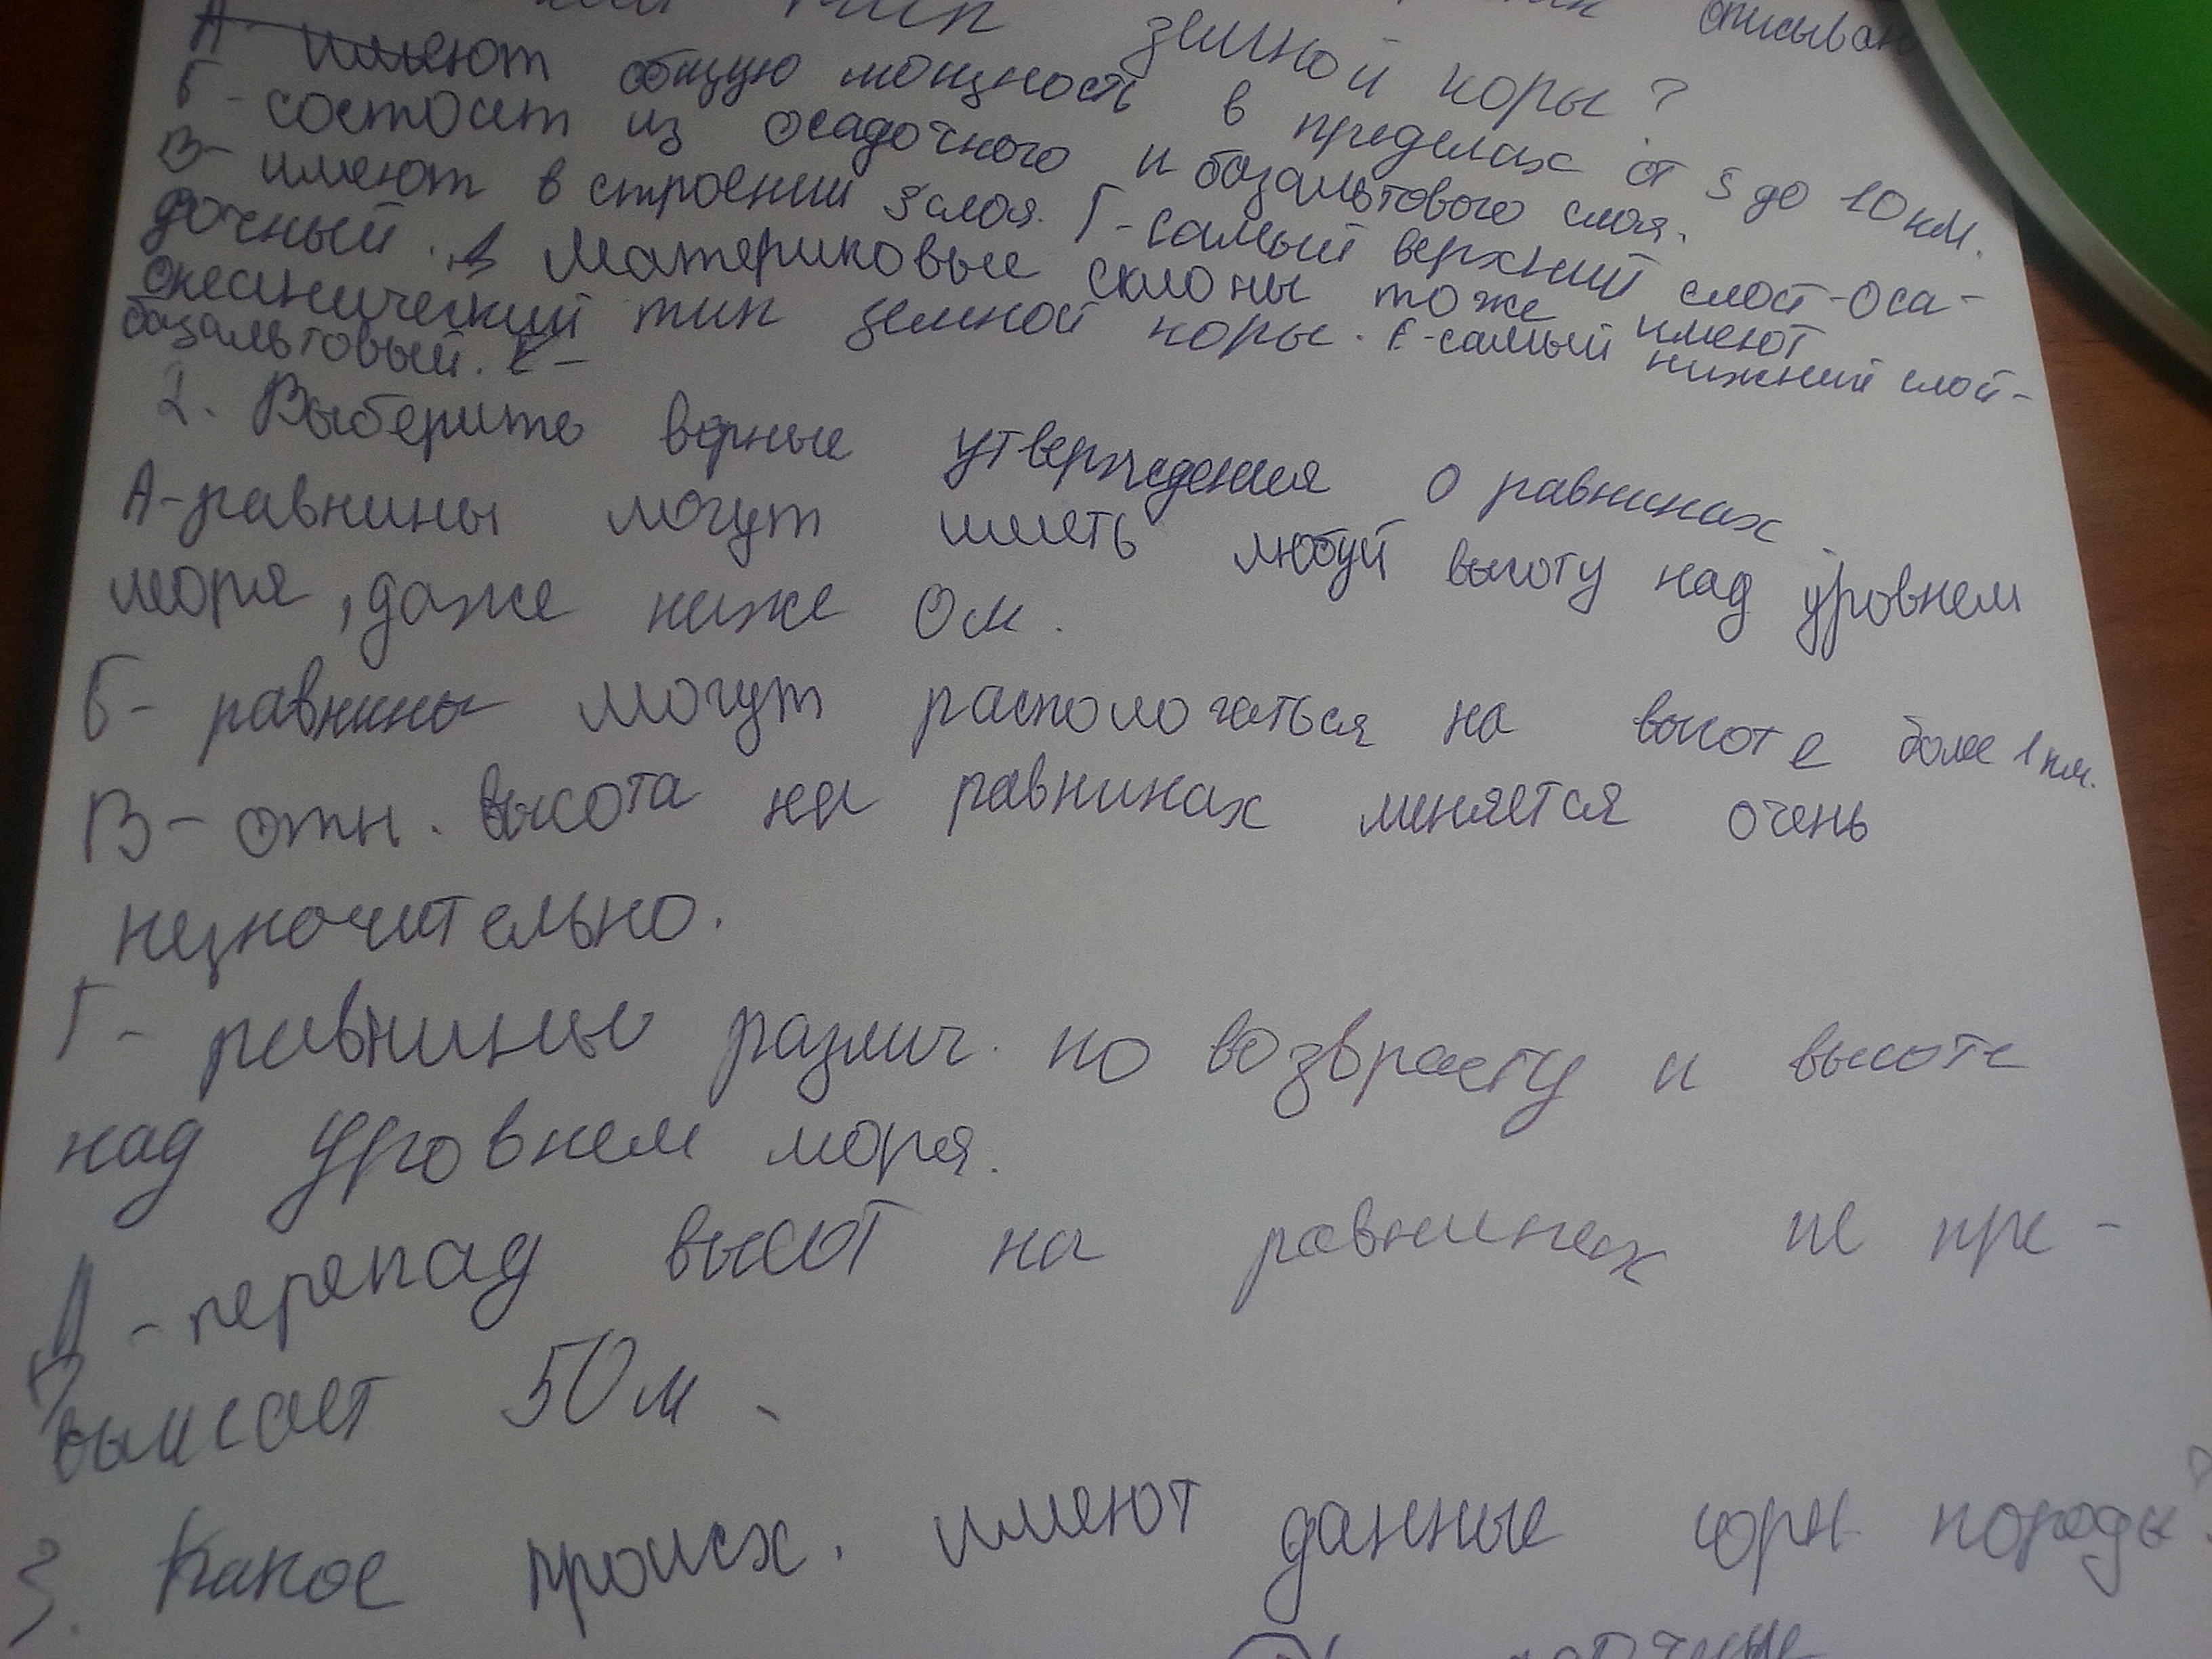 тип земной коры?
А- имеют общую мощность в пределах от 5 до 10 км.
Б- состоит из осадочного и базальтового слоя.
В- имеют в строении 3 слоя. Г- самый верхний слой - оса-
дочный. Материковые склоны тоже имеют
океанический тип земной коры. Е- самый нижний слой -
базальтовый.
2. Выберите верные утверждения о равнинах
А- равнины могут иметь любуй высоту над уровнем
моря, даже ниже 0 м.
Б- равнины могут распологаться на высоте более 1 км.
В- отн. высота на равнинах меняется очень
незночительно.
Г- равнины различ. по возврасту и высоте
над уровнем моря.
Д- перепад высот на равнинах не пре-
вышает 50 м.
3. Какое происх. имеют данные горн. породы?